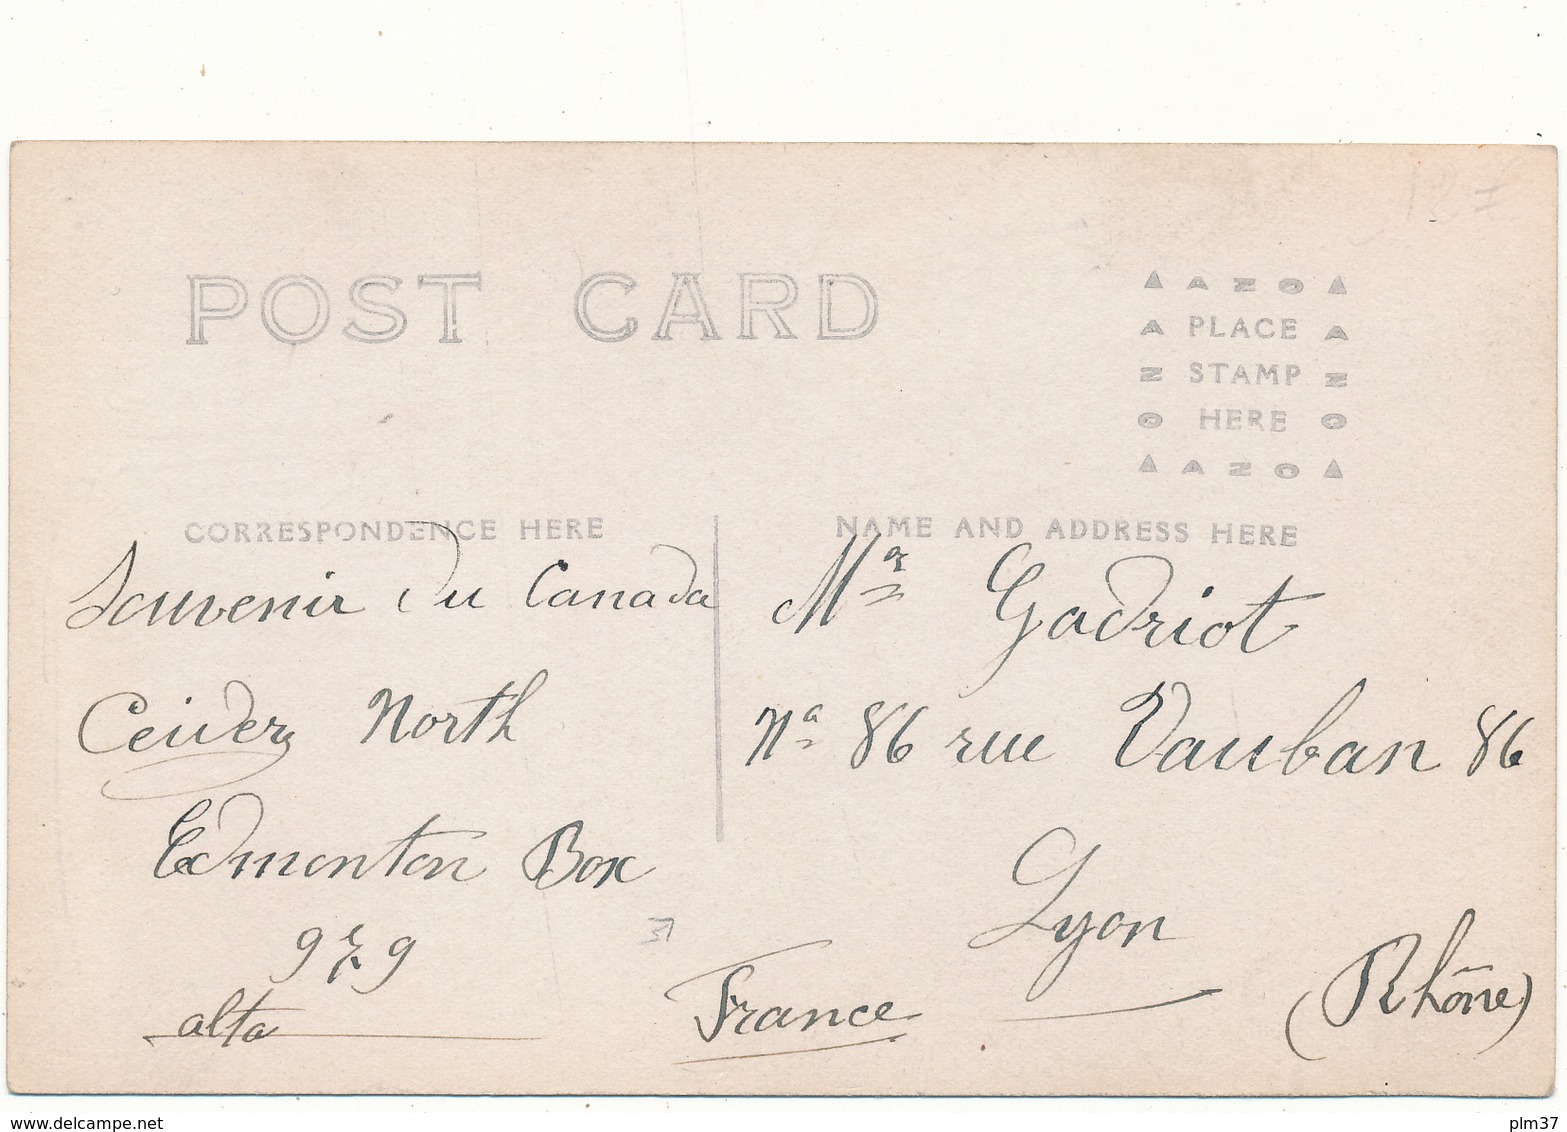 POST CARD
AZO
PLACE
STAMP
HERE
AZO
CORRESPONDENCE HERE
NAME AND ADDRESS HERE
Souvenir du Canada
North
Edmonton Box
979
alta
Mr Gadriot
No 86 rue Vauban 86
Lyon
(Rhône)
France
www.delcampe.net
plm37